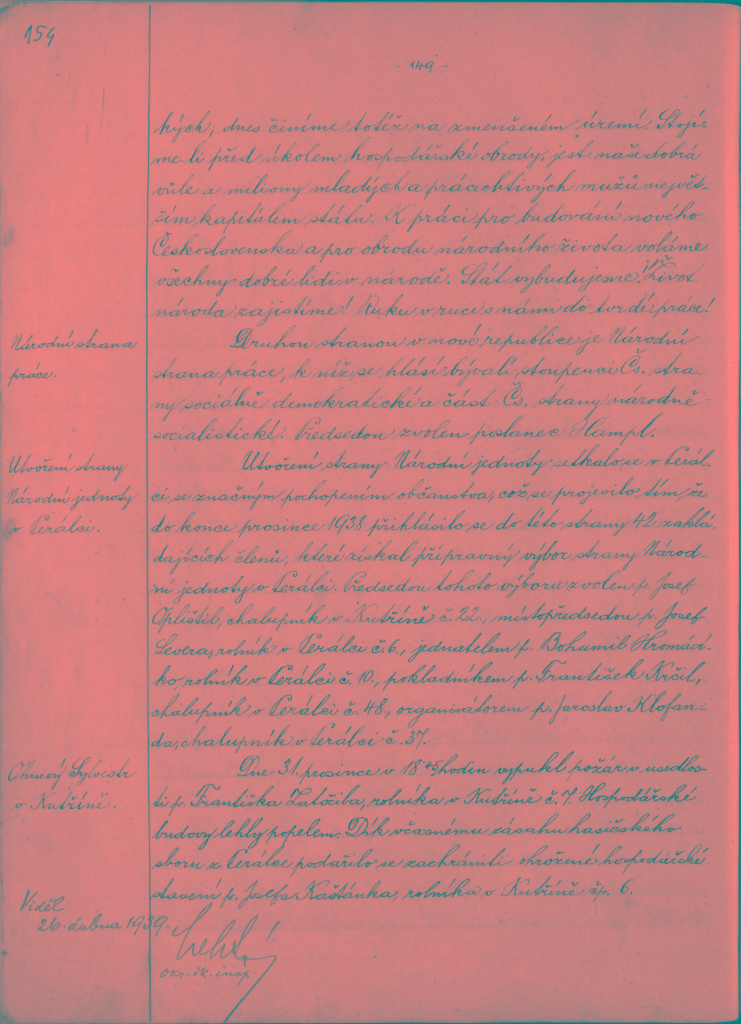 154
- 149 -
kých, dnes činíme totéž na zmenšeném území. Stojí-
me-li před úkolem hospodářské obrody, jest naše dobrá
vůle a miliony mladých a práce chtivých mužů největ-
ším kapitálem státu. K práci pro budování nového
Československa a pro obrodu národního života voláme
všechny dobré lidi v národě. Stát vybudujeme! Život
národa zajistíme! Ruku v ruce s námi do tvrdé práce!
Národní strana
práce.
Druhou stranou v nové republice je Národní
strana práce, k níž se hlásí bývalí stoupenci Čs. stra-
ny sociálně demokratické a část Čs. strany národně
socialistické. Předsedou zvolen poslanec Hampl.
Utvoření strany
Národní jednoty
v Perálci.
Utvoření strany Národní jednoty setkalo se v Perál-
ci se značným pochopením občanstva, což se projevilo tím, že
do konce prosince 1938 přihlásilo se do této strany 42 zaklá-
dajících členů, které získal přípravný výbor strany Národ-
ní jednoty v Perálci. Předsedou tohoto výboru zvolen p. Josef
Oplištil, chalupník v Kutříně č. 22., místopředsedou p. Josef
Severa, rolník v Perálci č. 6., jednatelem p. Bohumil Hromád-
ko, rolník v Perálci č. 10., pokladníkem p. František Krčil,
chalupník v Perálci č. 48., organisátorem p. Jaroslav Klofan-
da, chalupník v Perálci č. 37.
Ohnivý Sylvestr
v Kutříně.
Dne 31. prosince v 18 45 hodin vypukl požár v usedlos-
ti p. Františka Zatočila, rolníka v Kutříně č. 7. Hospodářské
budovy lehly popelem. Dík včasnému zásahu hasičského
sboru z Perálce podařilo se zachrániti ohrožené hospodářské
stavení p. Josefa Kaštánka, rolníka v Kutříně čp. 6.
Viděl
26. dubna 1939.
okr. šk. insp.